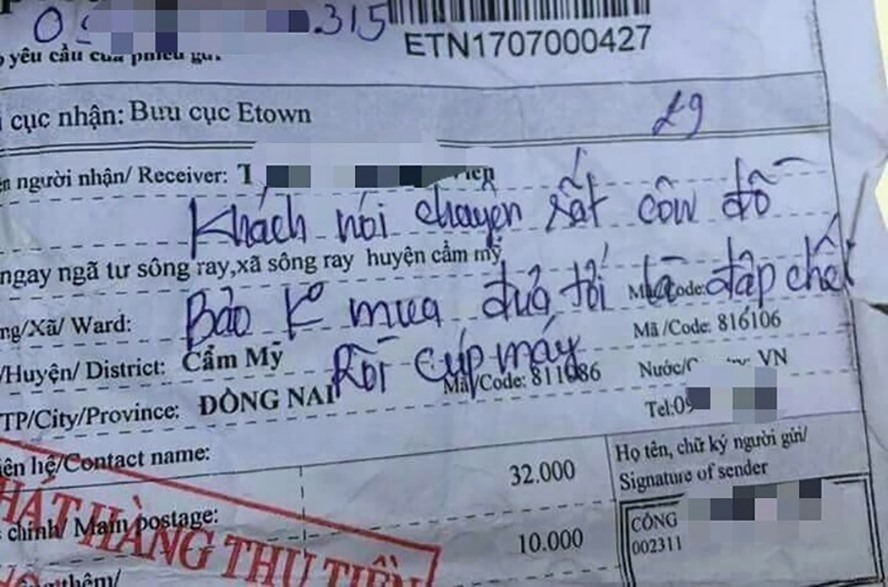 315
ETN1707000427
yêu cầu của phiếu gửi
cục nhận: Bưu cục Etown
29
người nhận/ Receiver: T
Khách nói chuyện rất côn đồ
ngay ngã tư sông ray,xã sông ray huyện cẩm mỹ
Bảo k mua đứa tới là đập chết
ng/Xã/ Ward: Mã/Code:
Mã /Code: 816106
/Huyện/ District: Cẩm Mỹ
Rồi cúp máy
Mã/Code: 811086 Nước/ VN
TP/City/Province: ĐỒNG NAI
Tel:09
hệ/Contact name:
32.000
Họ tên, chữ ký người gửi/
Signature of sender
PHÁT HÀNG THU TIỀN
chính/ Main postage:
10.000
CÔNG
002311
thêm/